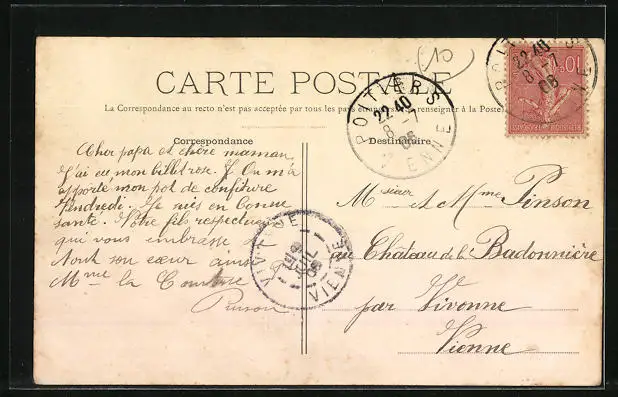 10
CARTE POSTALE
La Correspondance au recto n'est pas acceptée par tous les pays étrangers. se renseigner à la Poste
Correspondance
Destinataire
Cher papa et chère maman,
J'ai eu mon billet rose. On m'a
apporté mon pot de confiture
Vendredi. Je suis en bonne
santé. Votre fils respectueux
qui vous embrasse de
tout son cœur ainsi
Mme la Comtesse
Pinson
Monsieur et Mme Pinson
au Château de la Badonnière
par Vivonne
Vienne
POITIERS
22 40
8 - 7
08
VIENNE
VIVONNE
VIENNE
POITIERS
22 40
8 - 7
08
10c